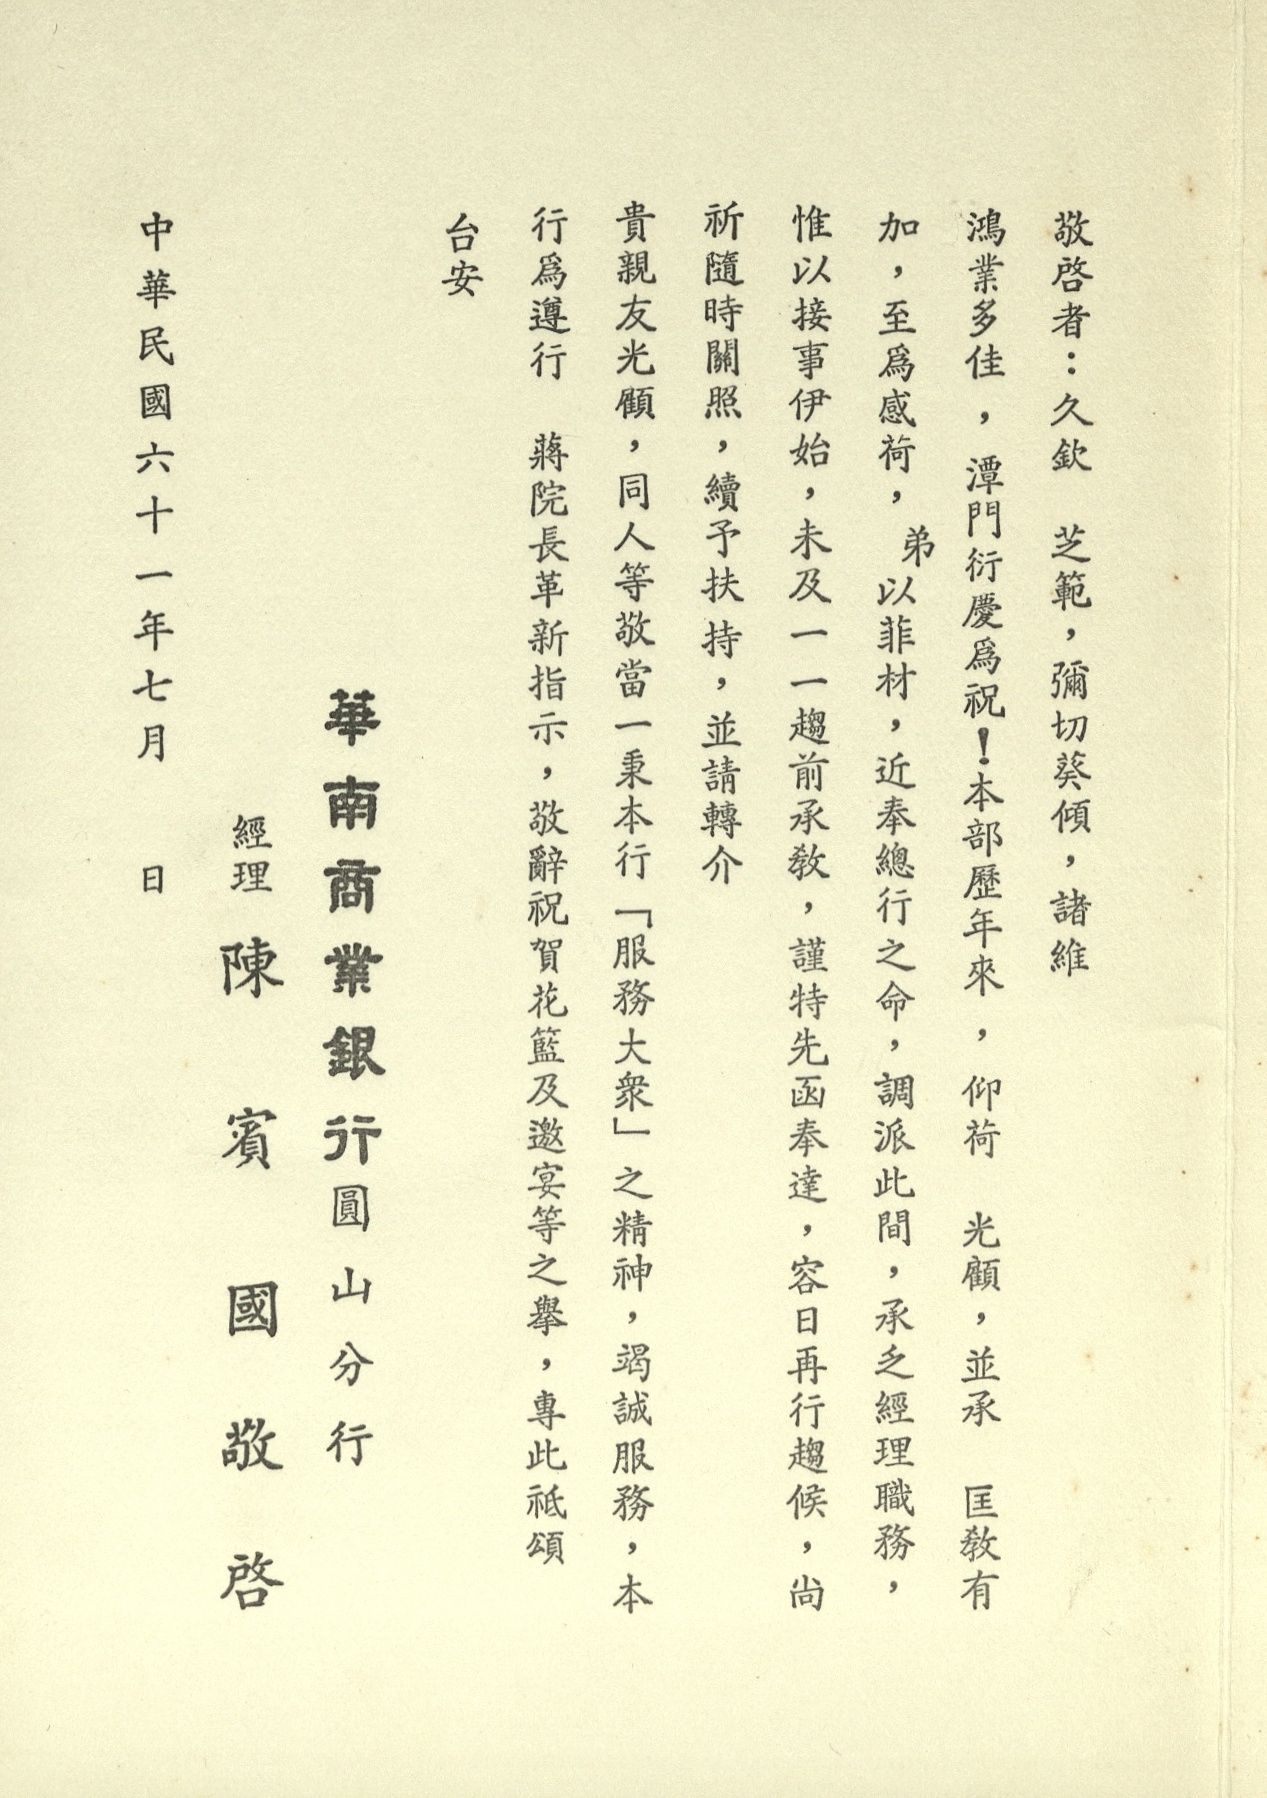 敬啓者：久欽　芝範，彌切葵傾，諸維
鴻業多佳，潭門衍慶爲祝！本部歷年來，仰荷　光顧，並承　匡教有
加，至爲感荷，弟以菲材，近奉總行之命，調派此間，承乏經理職務，
惟以接事伊始，未及一一趨前承教，謹特先函奉達，容日再行趨候，尚
祈隨時關照，續予扶持，並請轉介
貴親友光顧，同人等敬當一秉本行「服務大衆」之精神，竭誠服務，本
行爲遵行　蔣院長革新指示，敬辭祝賀花籃及邀宴等之舉，專此祇頌
台安
華南商業銀行圓山分行
經理　陳賓國敬啓
中華民國六十一年七月　日